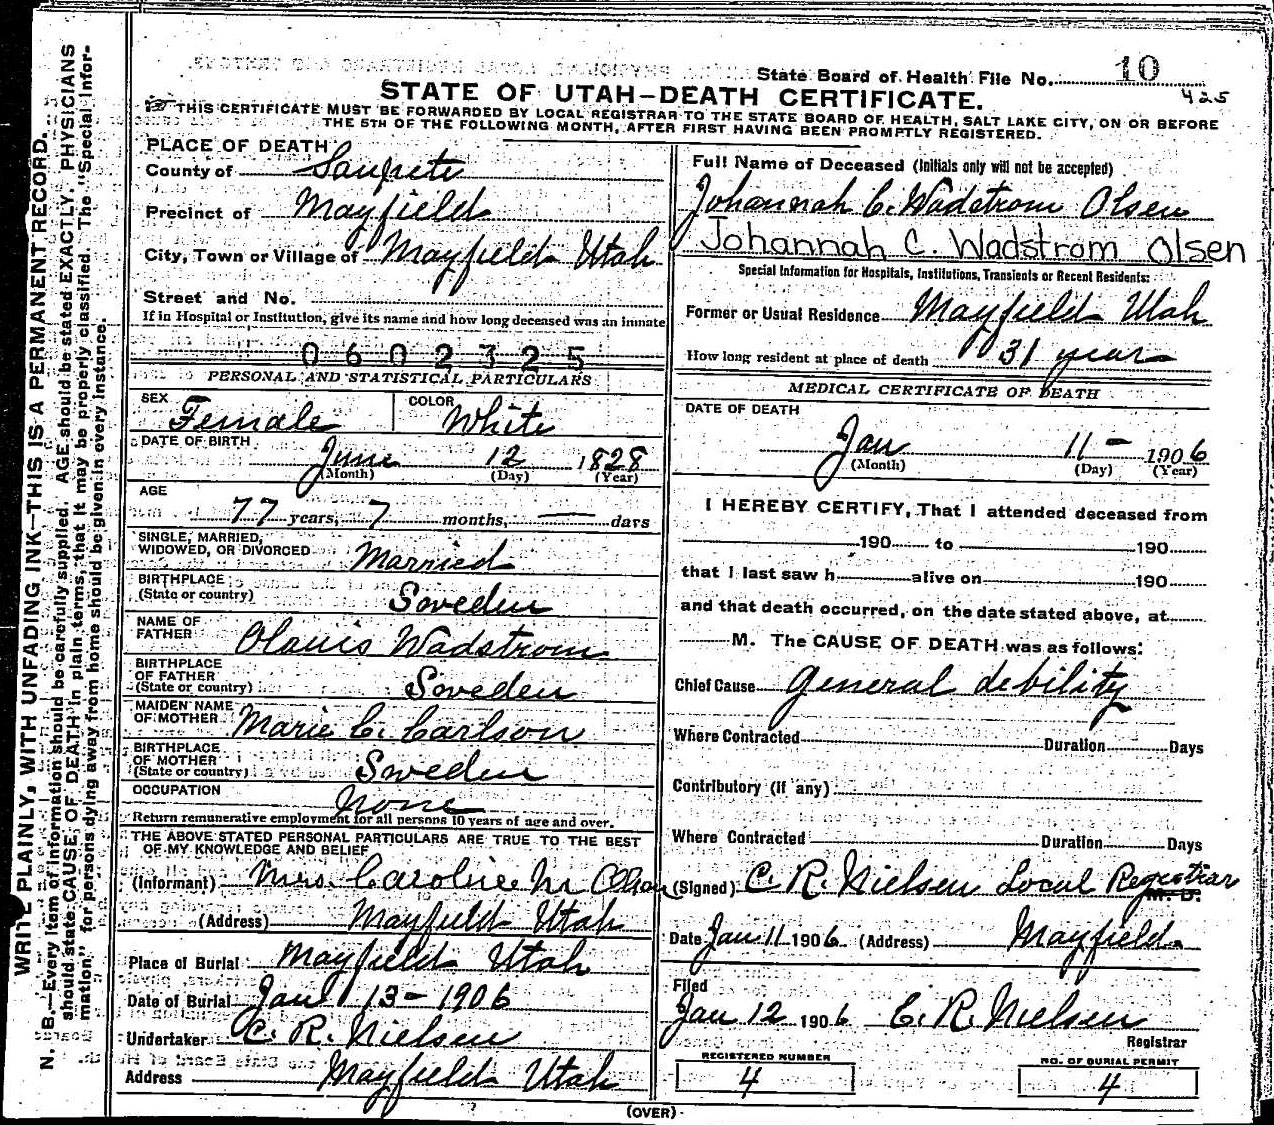 State Board of Health File No. 10
425
STATE OF UTAH—DEATH CERTIFICATE.
THIS CERTIFICATE MUST BE FORWARDED BY LOCAL REGISTRAR TO THE STATE BOARD OF HEALTH, SALT LAKE CITY, ON OR BEFORE
THE 5TH OF THE FOLLOWING MONTH, AFTER FIRST HAVING BEEN PROMPTLY REGISTERED.
WRITE PLAINLY, WITH UNFADING INK—THIS IS A PERMANENT RECORD.
N. B.—Every item of information should be carefully supplied. AGE should be stated EXACTLY. PHYSICIANS
should state CAUSE OF DEATH in plain terms, that it may be properly classified. The "Special Infor-
mation," for persons dying away from home should be given in every instance.
PLACE OF DEATH
County of Sanpete
Precinct of Mayfield
City, Town or Village of Mayfield Utah
Street and No.
If in Hospital or Institution, give its name and how long deceased was an inmate
0602325
PERSONAL AND STATISTICAL PARTICULARS
SEX Female COLOR White
DATE OF BIRTH
June 12 1828
(Month) (Day) (Year)
AGE
77 years, 7 months, — days
SINGLE, MARRIED,
WIDOWED, OR DIVORCED Married
BIRTHPLACE
(State or country) Sweden
NAME OF
FATHER Olauis Wadstrom
BIRTHPLACE
OF FATHER
(State or country) Sweden
MAIDEN NAME
OF MOTHER Marie C. Carlson
BIRTHPLACE
OF MOTHER
(State or country) Sweden
OCCUPATION None
Return remunerative employment for all persons 10 years of age and over.
THE ABOVE STATED PERSONAL PARTICULARS ARE TRUE TO THE BEST
OF MY KNOWLEDGE AND BELIEF
(Informant) Mrs. Caroline M Olson
(Address) Mayfield Utah
Place of Burial Mayfield Utah
Date of Burial Jan 13 - 1906
Undertaker C. R. Nielsen
Address Mayfield Utah
Full Name of Deceased (Initials only will not be accepted)
Johannah C. Wadstrom Olsen
Johannah C. Wadstrom Olsen
Special Information for Hospitals, Institutions, Transients or Recent Residents:
Former or Usual Residence Mayfield Utah
How long resident at place of death 31 years
MEDICAL CERTIFICATE OF DEATH
DATE OF DEATH
Jan 11 - 1906
(Month) (Day) (Year)
I HEREBY CERTIFY, That I attended deceased from
190 to 190
that I last saw h alive on 190
and that death occurred, on the date stated above, at
M. The CAUSE OF DEATH was as follows:
Chief Cause General debility
Where Contracted Duration Days
Contributory (if any)
Where Contracted Duration Days
(Signed) C. R. Nielsen Local Registrar
M. D.
Date Jan 11 1906 (Address) Mayfield.
Filed
Jan 12 1906 C. R. Nielsen
Registrar
REGISTERED NUMBER
4
NO. OF BURIAL PERMIT
4
(OVER)